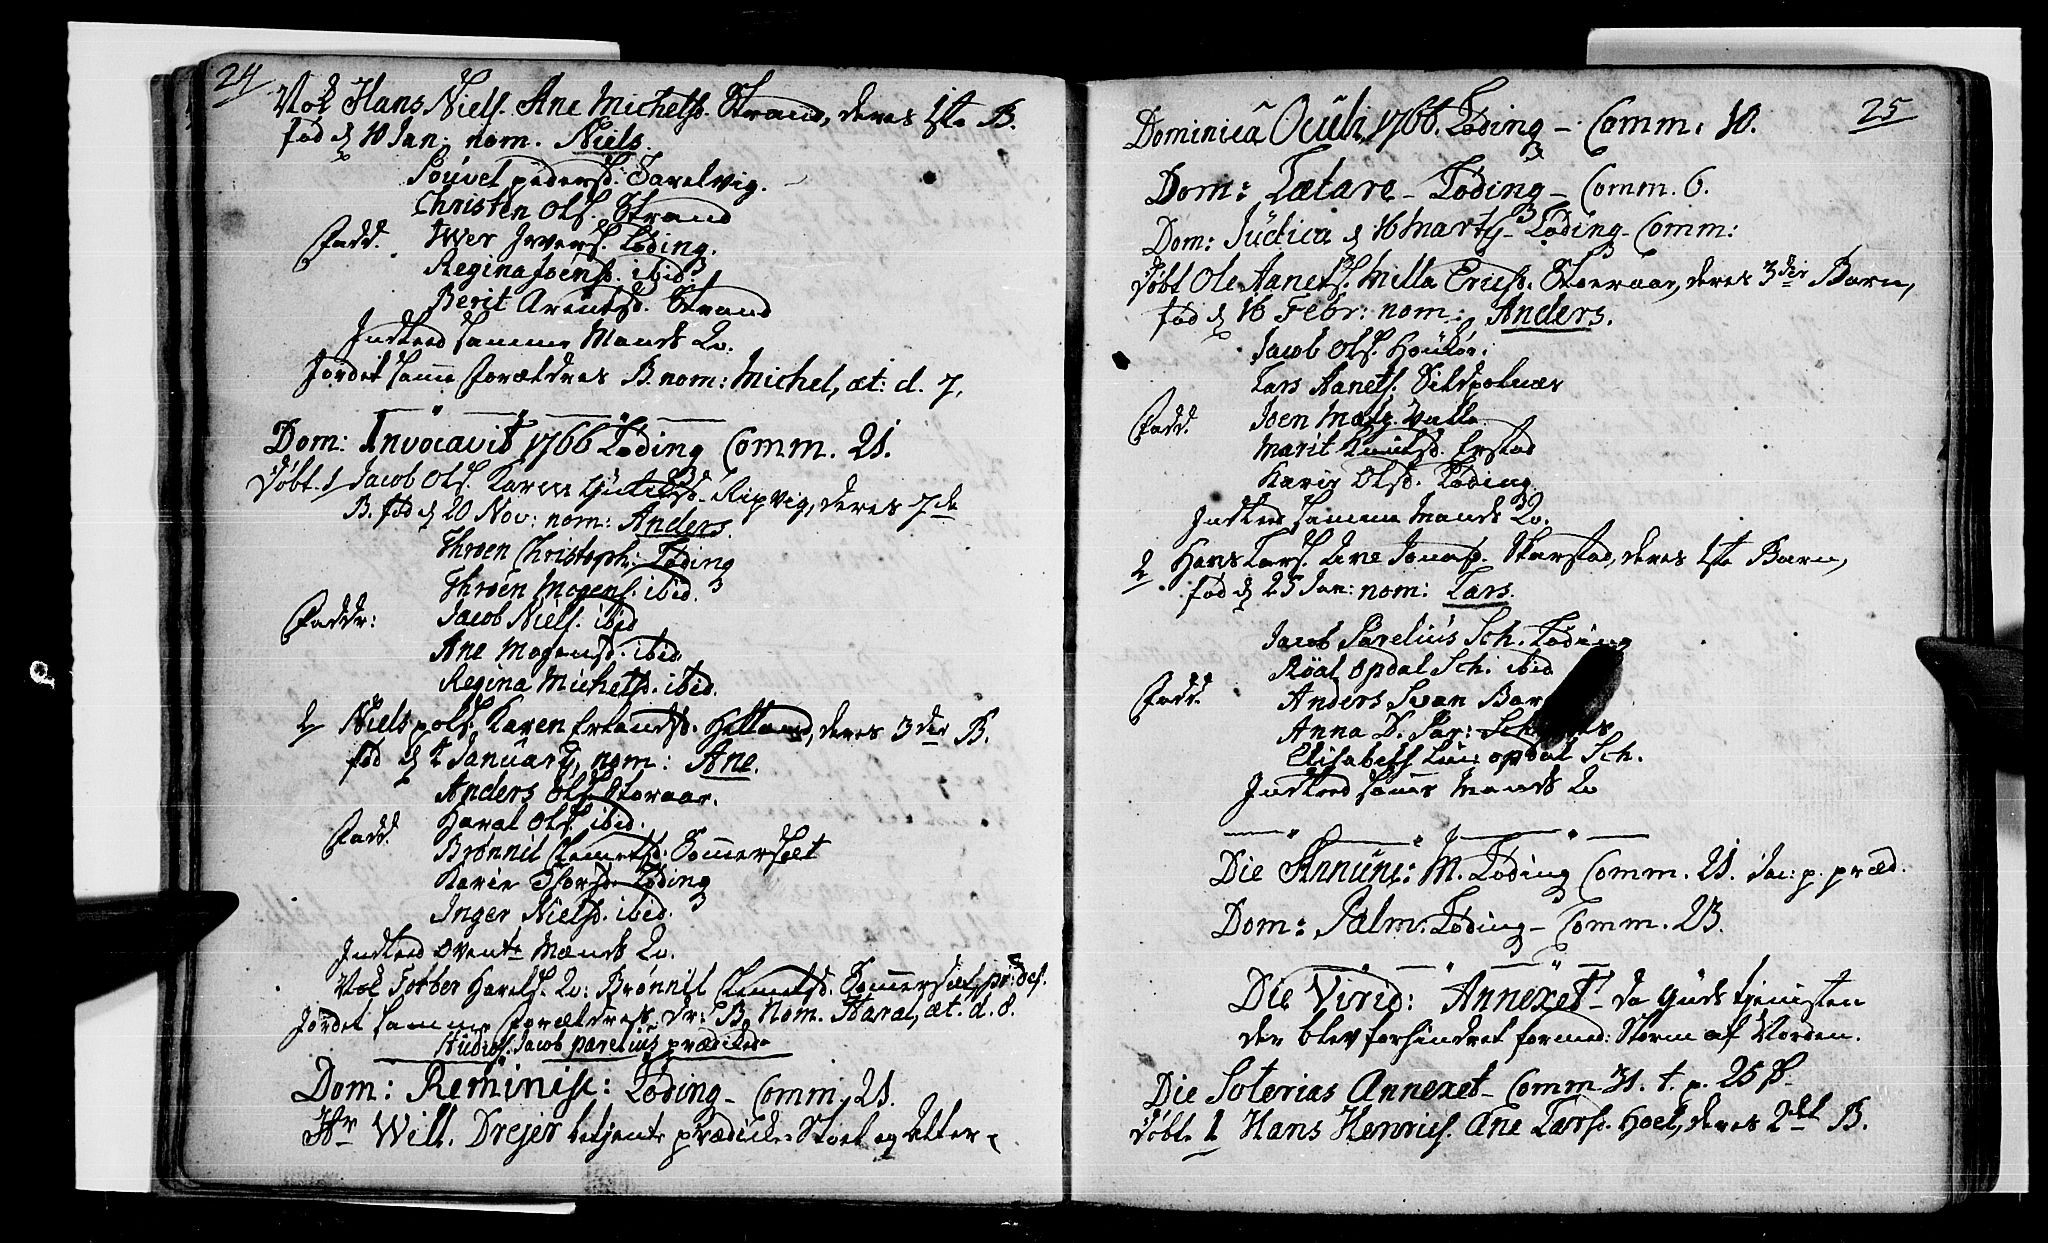 24
Vol Hans Niels. Ane Michelsd. Strand, deres 1ste B.
fød d 10 Jan: nom. Niels.
Souvel pedersd. Tarelvig.
Christen Ols. Strand
Fadd. Iwer Ivers. Løding.
Regina Joensd. ibid
Berit Arentsd. Strand
Indted samme Mands Qv.
Jordet samme Forældres B. nom: Michel, æt: d. 7.
Dom: Invocavit 1766 Løding Comm. 21.
Døbt 1 Jacob Ols. Karen Ripvig, deres 7de
B. fød d 20 Nov: nom: Anders.
Throen Christoph: Løding
Throen Mogens. ibid.
Faddr: Jacob Niels. ibid
Ane Mogensd. ibid
Regina Michelsd. ibid.
2 Niels pols. Karen Erlandsd. deres 3die B.
fød d January, nom: Ane.
Anders Ols. Storaar.
Fadd. Haral Ols. ibid.
Brønnil Clemetsd. Sommerset
Karin Thorsd. Løding
Inger Nielsd. ibid.
Indted ovente Mands Qv.
Vol Torber Harels. Qv: Brønnil Clemetsd. Sommerset,
Jordet samme Forældres Dr: B. Nom. Haral, æt. d. 8.
Studios. Jacob parelius prædikede
Dom: Reminisc: Løding – Comm. 21.
Hr Will. Drejer betjente prædike Stoel og Alter.
25
Dominica Oculi, 1766. Løding – Comm: 10.
Dom: Lætare – Løding – Comm. 6.
Dom: Judica d 16 Marty – Løding – Comm:
Døbt Ole Aanets. Milla Ericsd. Storaar, deres 3die Barn,
fød d 16 Febr: nom: Anders.
Jacob Ols.
Lars Aanets. Sildpolnær
Fadd. Joen Valle
Marit Knutsd. Erstad
Karin Olsd. Løding
Indted samme Mands Qv.
2 Hans Lars. Ane Jonasd. Skarstad, deres 1ste Barn,
fød d 25 Jan: nom: Lars.
Jacob Parelius Sch. Løding
Røal Opdal Sch. ibid
Fadd. Anders Svan
Anna D. Par:
Elisabeth Opdal Sch.
Indted samme Mands Qv
Die Annunc: M. Løding Comm. 21. Jac: p. præd.
Dom: Palm. Løding – Comm. 23.
Die Virid: Annexet – da Guds tjenisten
der blev forhindret formed: Storm af Norden.
Die Soterias Annexet – Comm. 31. t. p. 25
Døbt 1 Hans Henrics. Ane Larsd. Hoel, deres 2det B.